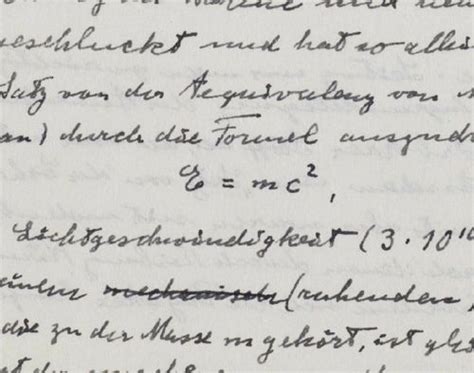 geschluckt und hat so allei
Satz von der Aequivalenz von
an) durch die Formel ausgedr
E = mc²,
Lichtgeschwindigkeit (3 · 10¹⁰
einem mechanisch (ruhenden
die zu der Masse m gehört, ist gle